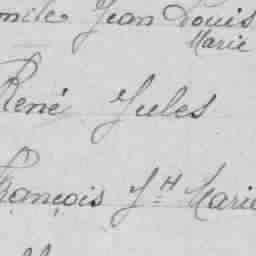 Emile Jean Louis
Marie
René Jules
François Jh Marie